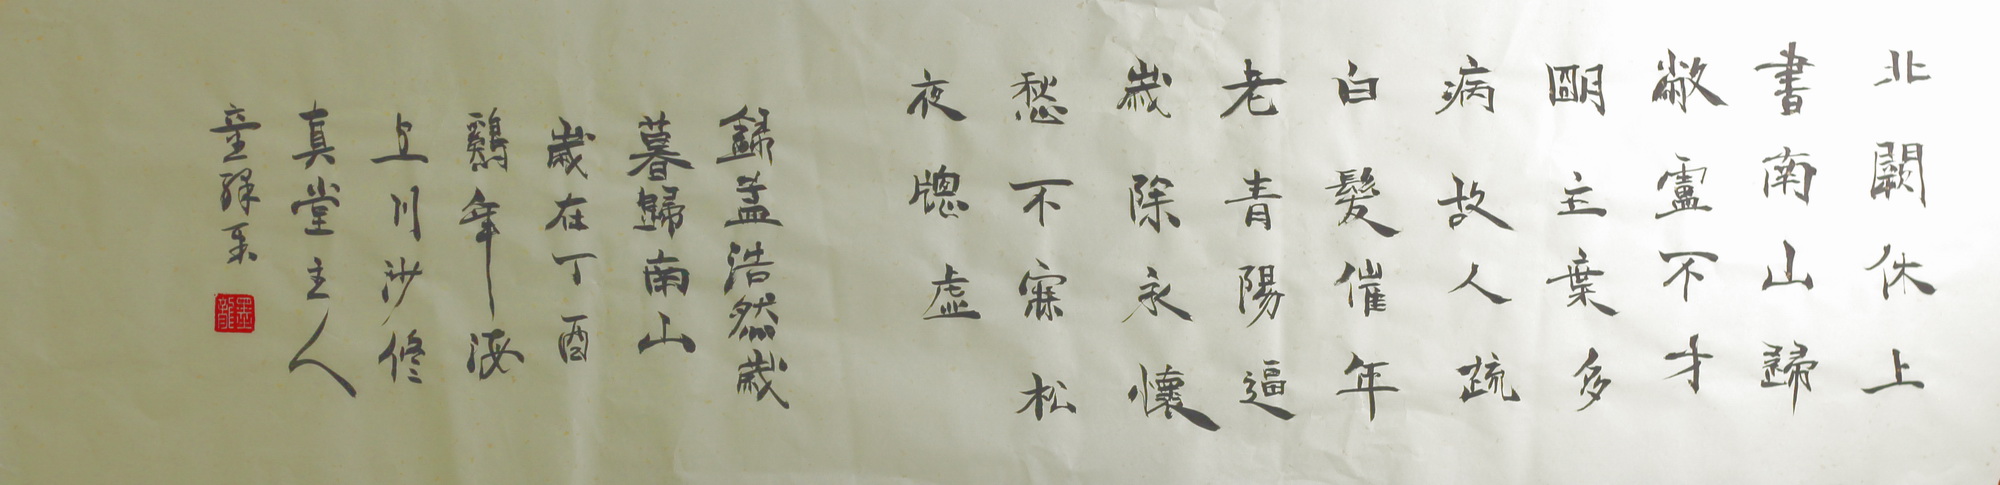 北闕休上
書南山歸
敝盧不才
朙主棄多
病故人疏
白髮催年
老青陽逼
歲除永懷
愁不寐松
夜牕虛
錄孟浩然歲
暮歸南山
歲在丁酉
鷄年海
上川沙修
真堂主人
童
墨龍